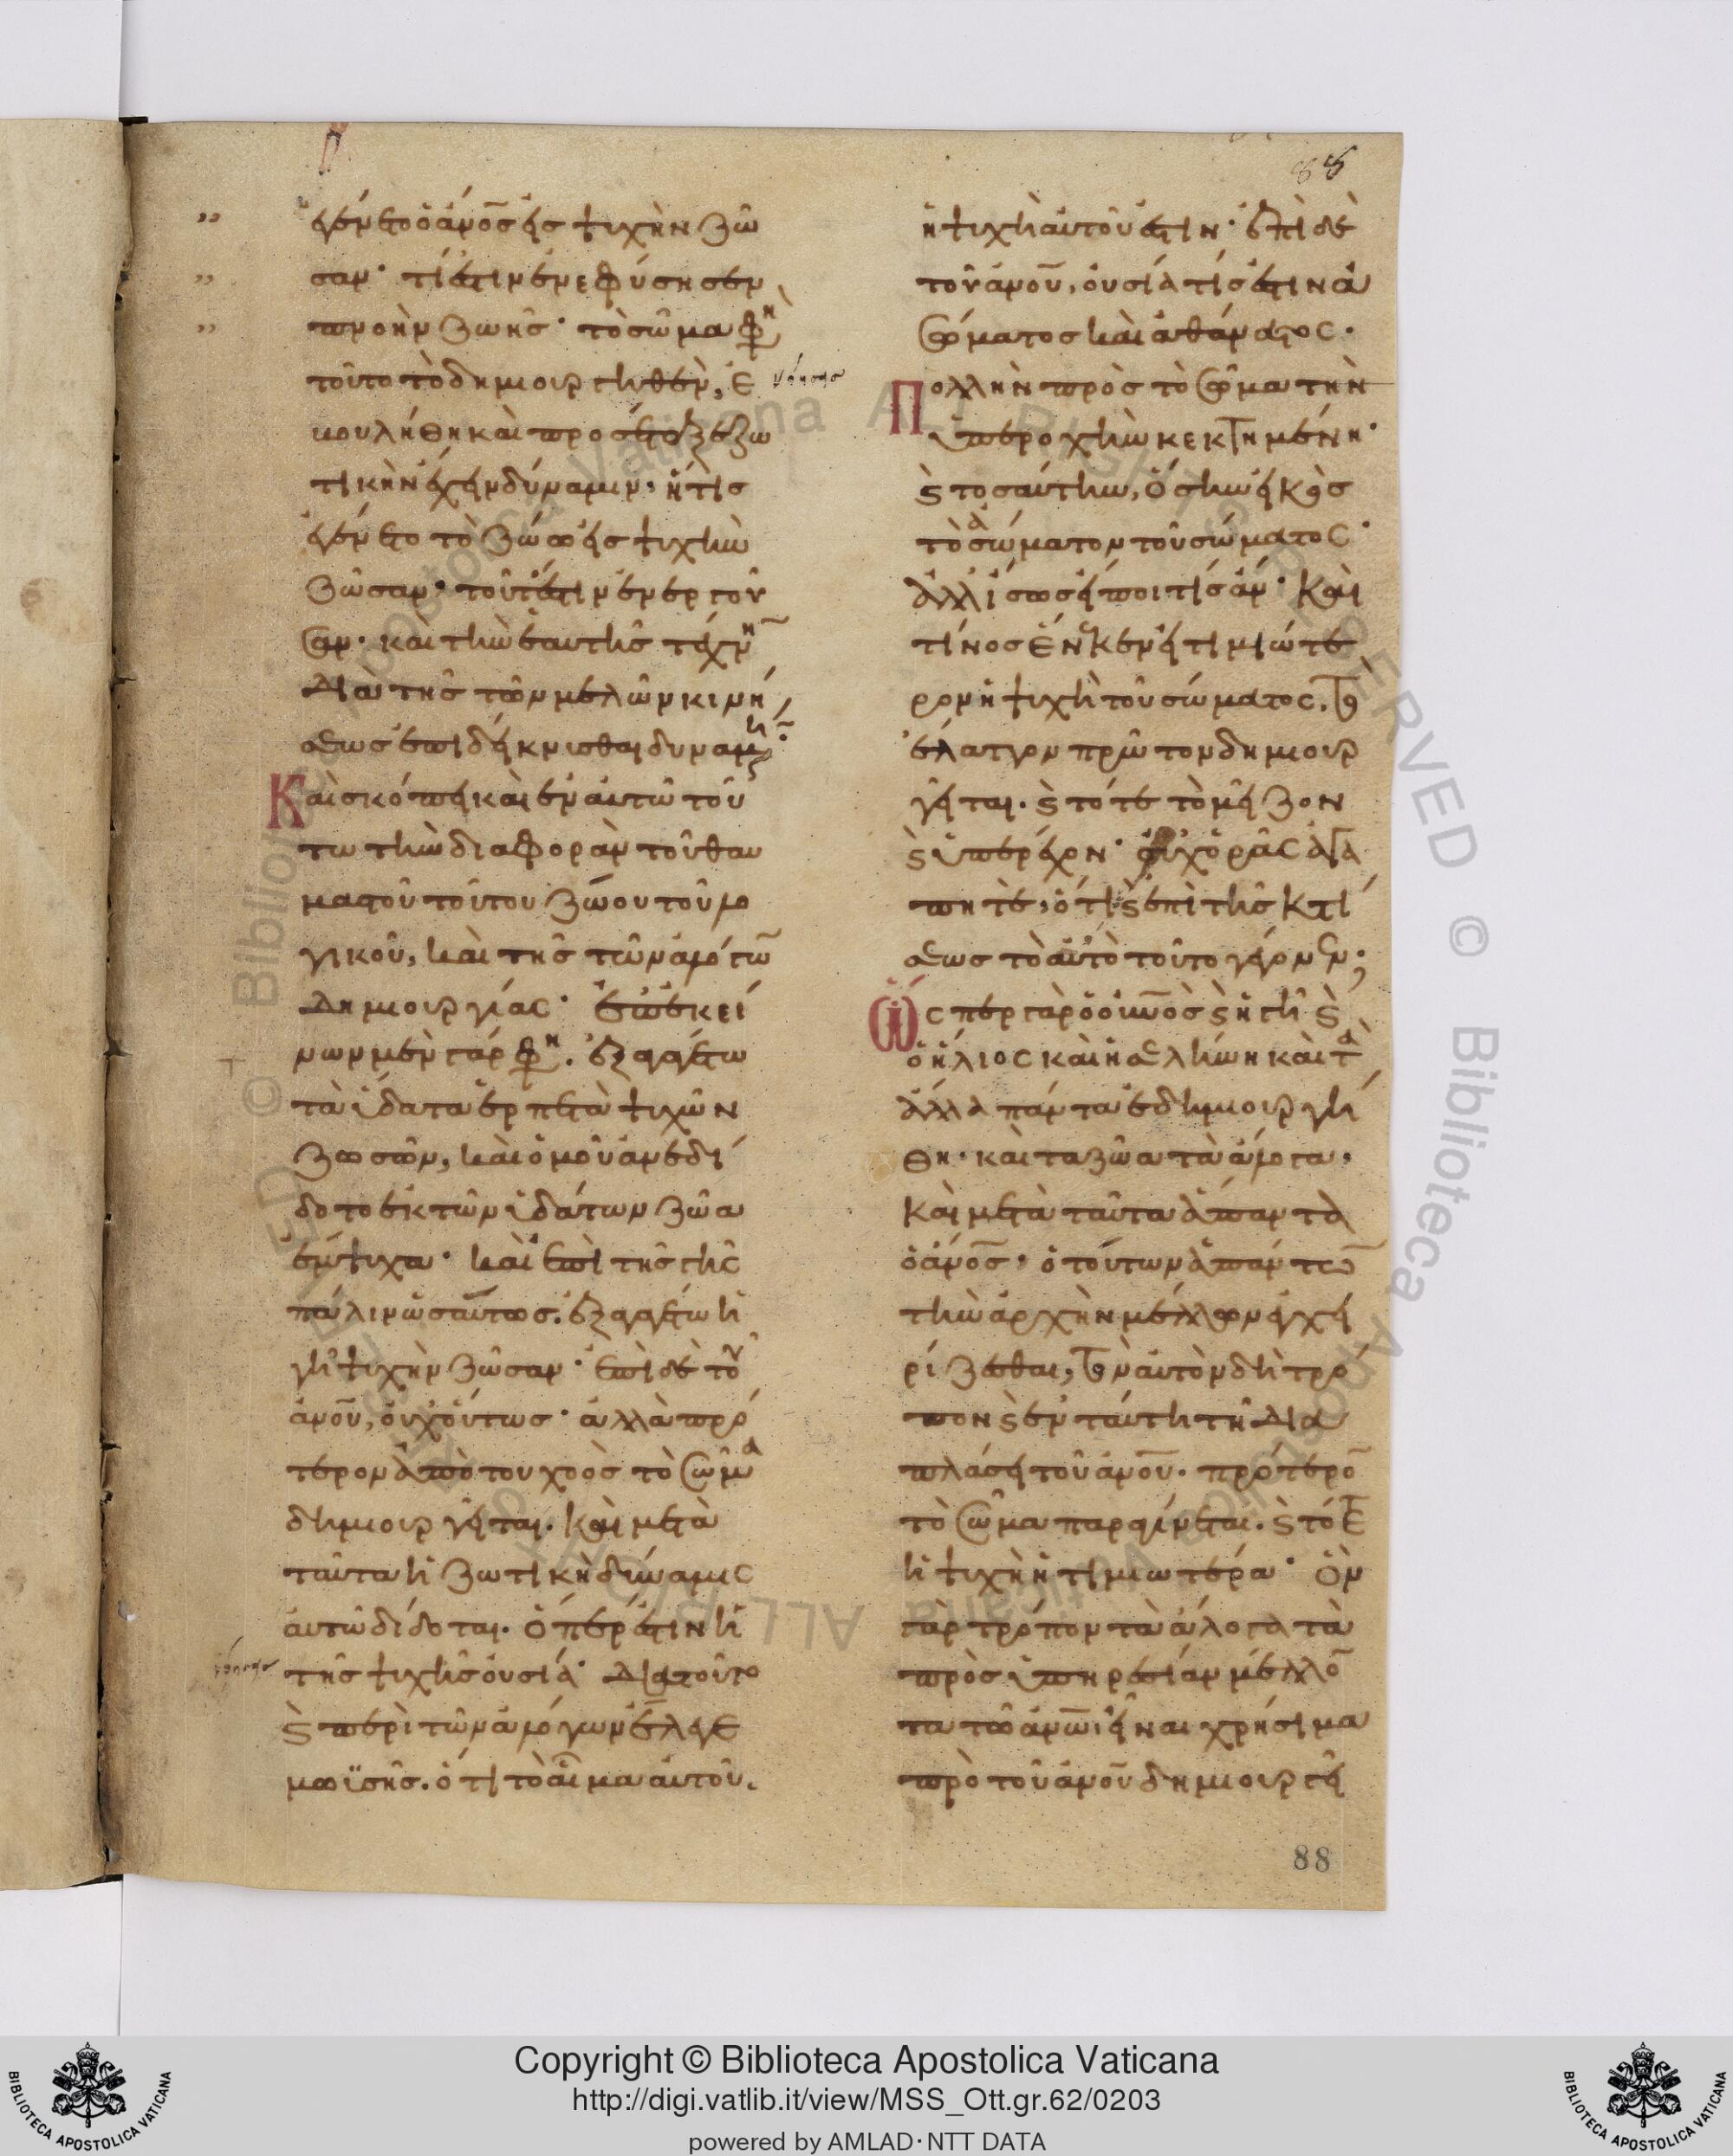 88
γένετο ὁ ἄνος εἰς ψυχὴν ζῶ
σαν· τί ἐστιν ἐνεφύσησεν
πνοὴν ζωῆς· τὸ σῶμα φη
τοῦτο τὸ δημιουργηθὲν, ἐ
βουλήθη καὶ προσέταξε ζω
τικὴν ἔχειν δύναμιν· ἥτις
ἐγένετο τὸ ζώω εἰς ψυχὴν
ζῶσαν· τουτέστιν ἐνεργοῦ
σαν· καὶ τὴν ἑαυτῆς τέχνη
διὰ τῆς τῶν μελῶν κινή
σεως ἐπιδείκνυσθαι δυναμένην·
Καὶ σκόπει καὶ ἐν αὐτῶ τού
τω τὴν διαφορὰν τοῦ θαυ
μαστοῦ τούτου ζώου τοῦ λο
γικοῦ, καὶ τῆς τῶν ἀλόγω
δημιουργίας· ἐπ ἐκεί
νων μὲν γάρ φη. ἐξαγαγέτω
τὰ ὕδατα ἑρπετὰ ψυχῶν
ζωσῶν, καὶ ὁμοῦ ἀνεδί
δοτο ἐκ τῶν ὑδάτων ζῶα
ἔμψυχα· καὶ ἐπὶ τῆς γῆς
πάλιν ὡσαύτως. ἐξαγαγέτω ἡ
γῆ ψυχὴν ζῶσαν· ἐπὶ δὲ τοῦ
ἀνου, οὐχ οὕτως· ἀλλὰ πρό
τερον ἀπὸ του χοὸς τὸ σῶμα
δημιουργεῖται. καὶ μετὰ
ταῦτα ἡ ζωτικὴ δύναμις
αὐτῶ δίδοται. ὅπερ ἐστὶν ἡ
τῆς ψυχῆς οὐσία· Διὰ τοῦτο
καὶ περὶ τῶν ἀλόγων ἔλεγε
μωϋσῆς. ὅτι τὸ αἷμα αὐτοῦ.
ἡ ψυχὴ αὐτοῦ ἐστιν· ἐπὶ δὲ
τοῦ ἀνου, οὐσία τίς ἐστιν ἀ
σώματος καὶ ἀθάνατος.
Πολλὴν πρὸς τὸ σῶμα τὴν
ὑπεροχὴν κεκτημένη·
καὶ τοσαύτην, ὅσην εἰκὸς
τὸ ἀσώματον τοῦ σώματος·
ἀλλ ἴσως εἴποι τίς ἄν· καὶ
τίνος ἕνεκεν εἰ τιμιώτε
ρον ἡ ψυχὴ τοῦ σώματος, τὸ
ἔλαττον πρῶτον δημιουρ
γεῖται. καὶ τότε τὸ μεῖζον
καὶ ὑπερέχον· οὐχ ὁρᾶς ἀγα
πητὲ, ὅτι καὶ ἐπὶ τῆς κτί
σεως τὸ αὐτὸ τοῦτο γέγονεν;
Ὥσπερ γὰρ ὁ οὐνος καὶ ἡ γῆ καὶ
ὁ ἥλιος καὶ ἡ σελήνη καὶ τὰ
ἄλλα πάντα ἐδημιουργή
θη· καὶ τα ζῶα τὰ ἄλογα.
καὶ μετὰ ταῦτα ἅπαντα
ὁ ἄνος· ὁ τούτων ἁπάντω
τὴν ἀρχὴν μέλλων ἐγχει
ρίζεσθαι, τὸν αὐτὸν δὴ τρό
πον καὶ ἐν ταύτη τῆ δια
πλάσει τοῦ ἀνου. πρότερο
τὸ σῶμα παράγεται. καὶ τότε
ἡ ψυχὴ ἡ τιμιωτέρα· ὃν
γὰρ τρόπον τὰ ἄλογα τὰ
πρὸς ὑπηρεσίαν μέλλο
τα τῶ ἀνωι εἶναι χρήσιμα
πρὸ τοῦ ἀνου δημιουργεῖ
88
Copyright © Biblioteca Apostolica Vaticana
http://digi.vatlib.it/view/MSS_Ott.gr.62/0203
powered by AMLAD·NTT DATA